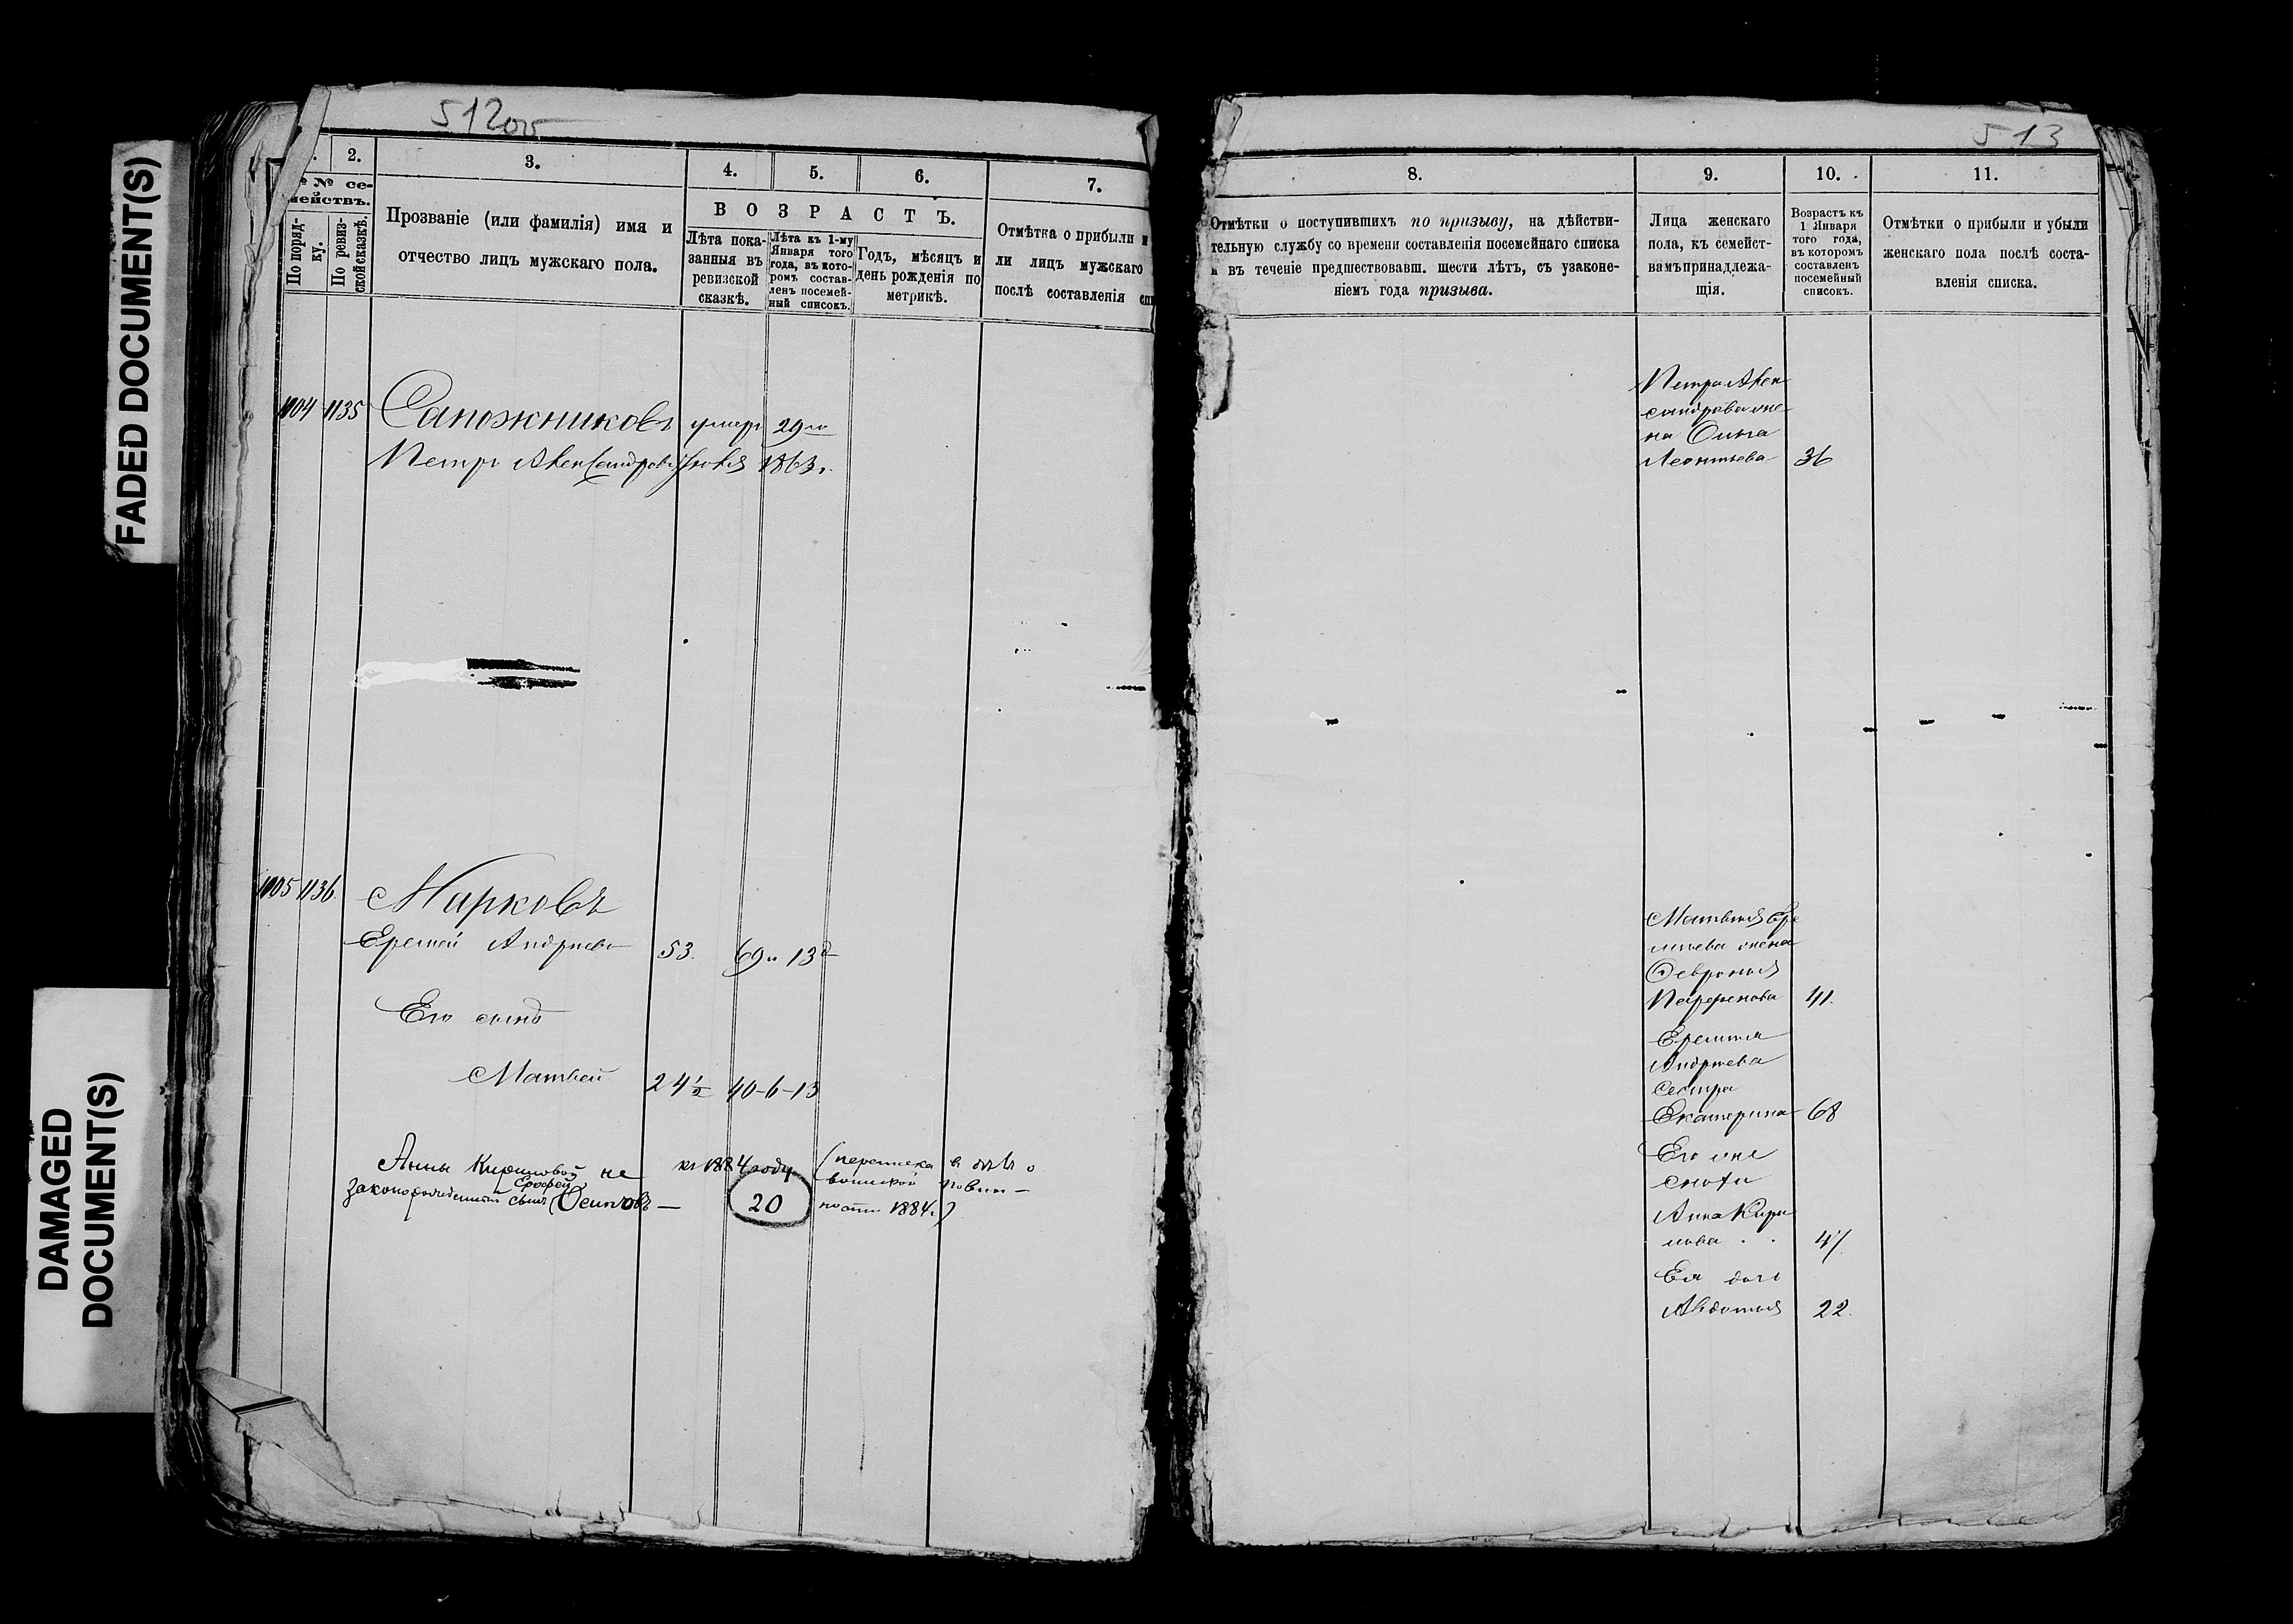 FADED DOCUMENT(S)
DAMAGED
DOCUMENT(S)
512об
2.
3.
4.
5.
6.
7.
№ № се-
мействъ.
По поряд-
ку.
По ревиз-
ской сказкѣ.
Прозваніе (или фамилія) имя и
отчество лицъ мужскаго пола.
ВОЗРАСТЪ.
Лѣта пока-
занныя въ
ревизской
сказкѣ.
Лѣта къ 1-му
Января того
года, въ кото-
ромъ состав-
ленъ посемей-
ный списокъ.
Годъ, мѣсяцъ и
день рожденія по
метрикѣ.
Отмѣтка о прибыли и
ли лицъ мужскаго
послѣ составленія
1104 1135 Сапожниковъ умеръ 29го
Петръ Александровъ 1863г.
1105 1136 Марковъ
Еремей Андреевъ 53. 69 и 13д
Его сынъ
Матвей 24½ 40-6-13
Анны Кириловой не къ 1884 году (переписка въ дѣлѣ о
законорожденный сынъ Ерофей (Осиповъ — 20 воинской повин-
ности 1884г.)
513
8.
9.
10.
11.
Отмѣтки о поступившихъ по призыву, на дѣйстви-
тельную службу со времени составленія посемейнаго списка
и въ теченіе предшествовавш. шести лѣтъ, съ узаконе-
ніемъ года призыва.
Лица женскаго
пола, къ семейст-
вамъ принадлежа-
щія.
Возрастъ къ
1 Января
того года,
въ которомъ
составленъ
посемейный
списокъ.
Отмѣтки о прибыли и убыли
женскаго пола послѣ соста-
вленія списка.
Петра Алек
сандрова же
на
Леонтьева 36
Матвея Ере
мѣева жена
Февронья
Парфенова 41.
Еремея
Андреева
Сестра
Екатерина 68
Его же
сноха
Анна Кири
лова . . 47.
Ея дочь
Авдотья 22.